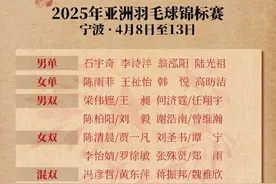 2025年亚洲羽毛球锦标赛
宁波·4月8日至13日
男单 石宇奇 李诗沣 翁泓阳 陆光祖
女单 陈雨菲 王祉怡 韩悦 高昉洁
男双 梁伟铿/王昶 何济霆/任翔宇
陈柏阳/刘毅 谢浩南/曾维瀚
女双 陈清晨/贾一凡 刘圣书/谭宁
李怡婧/罗徐敏 张殊贤/郑雨
混双 冯彦哲/黄东萍 蒋振邦/魏雅欣